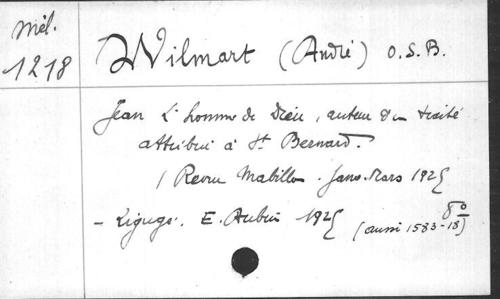 Mél.
1218
Wilmart (André) O.S.B.
Jean L'homme de Dieu, auteur d'un traité
attribué à St Bernard.
/ Revue Mabillon. Janv. Mars 1925
- Ligugé. E. Aubin 1925 8º
(aussi 1583-18)